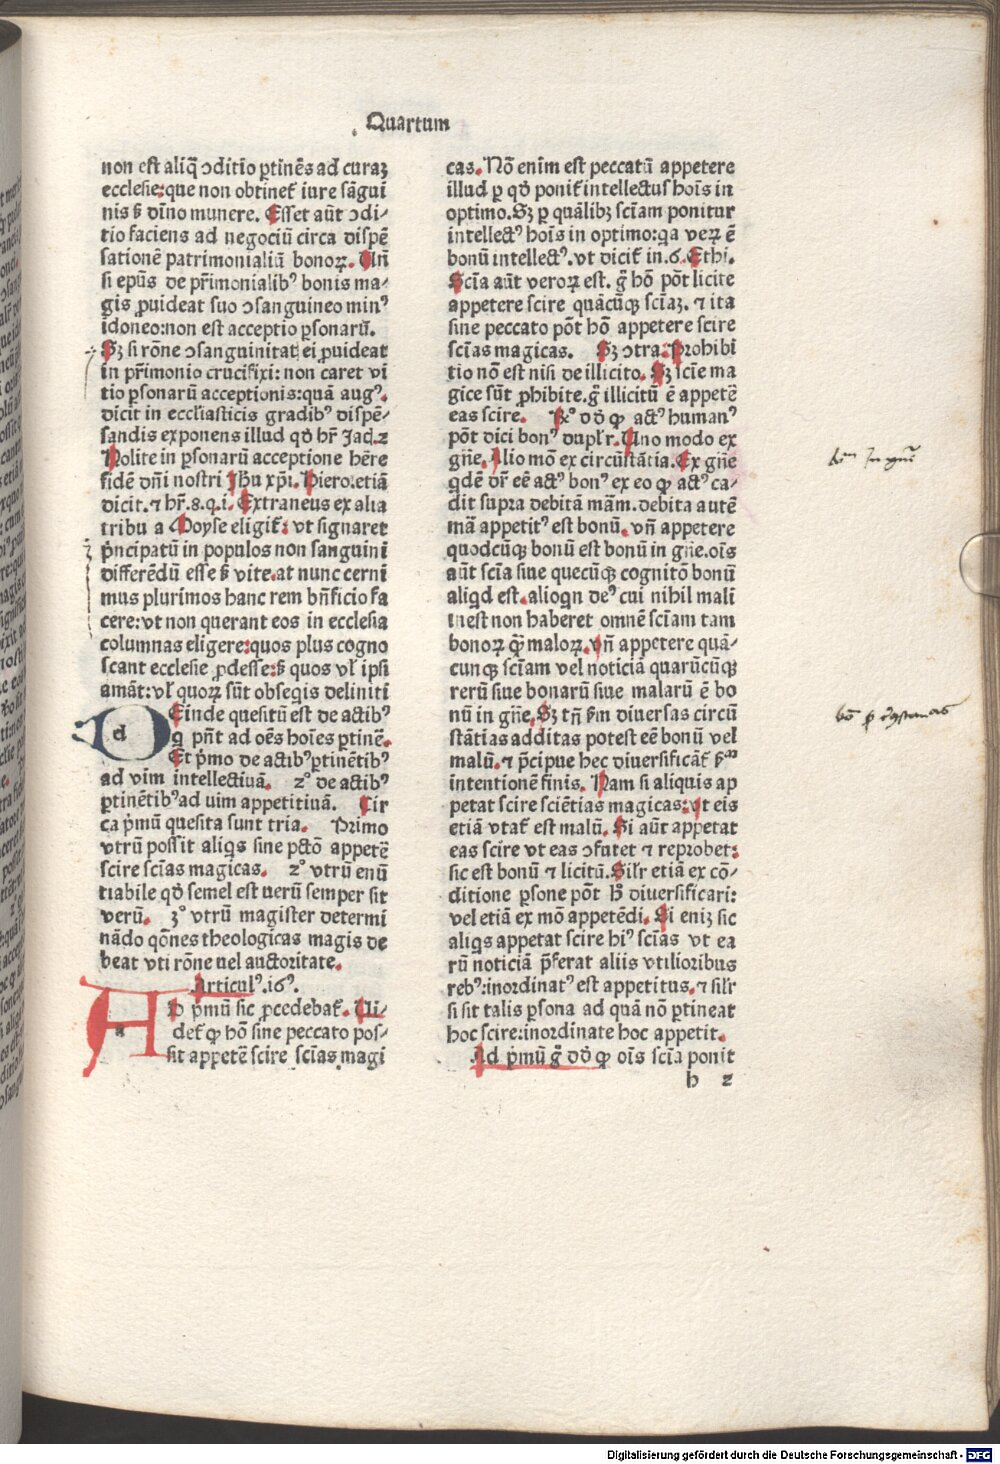 Quartum
non est aliq̄ ↄditio ꝑtinēs ad curaꝫ
ecclesie:que non obtinet᷑ iure sāgui
nis ẜ dīno munere. Esset aūt ↄdi-
tio faciens ad negociū circa dispē
sationē patrimonialiū bonoꝝ. Uñ
si epūs de pr̄imonialibꝰ bonis ma-
gis ꝓuideat suo ↄsanguineo minꝰ
idoneo:non est acceptio ꝑsonarū.
Sꝫ si rōne ↄsanguinitat᷑ ei ꝓuideat
in pr̄imonio crucifixi: non caret vi
tio ꝑsonarū acceptionis:quā augꝰ.
dicit in eccl̄iasticis gradibꝰ dispē-
sandis exponens illud qđ hr̄ Jad.2
Nolite in ꝑsonarū acceptione hēre
fidē dn̄i nostri Jh̄u xp̄i. Hiero.etiā
dicit.⁊ hr̄.8.q.i. Extraneus ex alia
tribu a Moyse eligit᷑: vt signaret
p̄ncipatū in populos non sanguini
differēdū esse ẜ vite.at nunc cerni
mus plurimos hanc rem bn̄ficio fa
cere:vt non querant eos in ecclesia
columnas eligere:quos plus cogno
scant ecclesie ꝓdesse:ẜ quos vl̄ ipsi
amāt:vl̄ quoꝝ sūt obseqiis deliniti
d Einde quesitū est de actibꝰ
q̄ pn̄t ad oēs hoīes ꝑtinē.
Et p̄mo de actibꝰ ꝑtinētibꝰ
ad vim intellectiuā. 2º de actibꝰ
ꝑtinētibꝰ ad uim appetitiuā. Cir
ca p̄mū quesita sunt tria. Primo
vtrū possit aliqs sine pctō appetē
scire scīas magicas. 2º vtrū enū
tiabile qđ semel est uerū semper sit
verū. 3º vtrū magister determi
nādo qōnes theologicas magis de
beat vti rōne uel auctoritate.
Articulꝰ.16ꝰ.
a Ad p̄mū sic ꝓcedebat᷑. Ui-
det᷑ ꝙ hō sine peccato pos-
sit appetē scire scīas magi
cas. Nō enim est peccatū appetere
illud ꝑ qđ ponit᷑ intellectus hoīs in
optimo. Sꝫ ꝑ quālibꝫ scīam ponitur
intellectꝰ hoīs in optimo:qa veꝝ ē
bonū intellectꝰ.vt dicit᷑ in.6.Ethi.
Scīa aūt veroꝝ est. ḡ hō pōt licite
appetere scire quācūqꝫ scīaꝫ. ⁊ ita
sine peccato pōt hō appetere scire
scīas magicas. Sꝫ ↄtra. Prohibi
tio nō est nisi de illicito. Sꝫ scīe ma
gice sūt ꝓhibite.ḡ illicitū ē appetē
eas scire. Rº dđ ꝙ actꝰ humanꝰ
pōt dici bonꝰ dupl̄r. Uno modo ex
gn̄e. Alio mō ex circūstātia. Ex gn̄e
qdē dr̄ eē actꝰ bonꝰ ex eo ꝙ actꝰ ca-
dit supra debitā mām.debita autē
mā appetitꝰ est bonū. vn̄ appetere
quodcūqꝫ bonū est bonū in gn̄e.oīs
aūt scīa siue quecūqꝫ cognitō bonū
aliqd est.alioqn deꝰ cui nihil mali
inest non haberet omnē scīam tam
bonoꝝ q̄ꝫ maloꝝ. vn̄ appetere quā-
cunqꝫ scīam vel noticiā quarūcūqꝫ
rerū siue bonarū siue malarū ē bo
nū in gn̄e. Sꝫ tn̄ ẜm diuersas circū
stātias additas potest eē bonū vel
malū.⁊ p̄cipue hec diuersificāt᷑ ẜm
intentionē finis. Nam si aliquis ap
petat scire sciētias magicas:vt eis
etiā vtat᷑ est malū. Si aūt appetat
eas scire vt eas ↄfutet ⁊ reprobet:
sic est bonū ⁊ licitū. Sil̄r etiā ex cō-
ditione ꝑsone pōt h̄ diuersificari:
vel etiā ex mō appetēdi. Si eniꝫ sic
aliqs appetat scire hiꝰ scīas vt ea
rū noticiā p̄ferat aliis vtilioribus
rebꝰ:inordinatꝰ est appetitus.⁊ sil̄r
si sit talis ꝑsona ad quā nō ꝑtineat
hoc scire:inordinate hoc appetit.
Ad p̄mū ḡ dđ ꝙ oīs scīa ponit
h 2
Digitalisierung gefördert durch die Deutsche Forschungsgemeinschaft - DFG